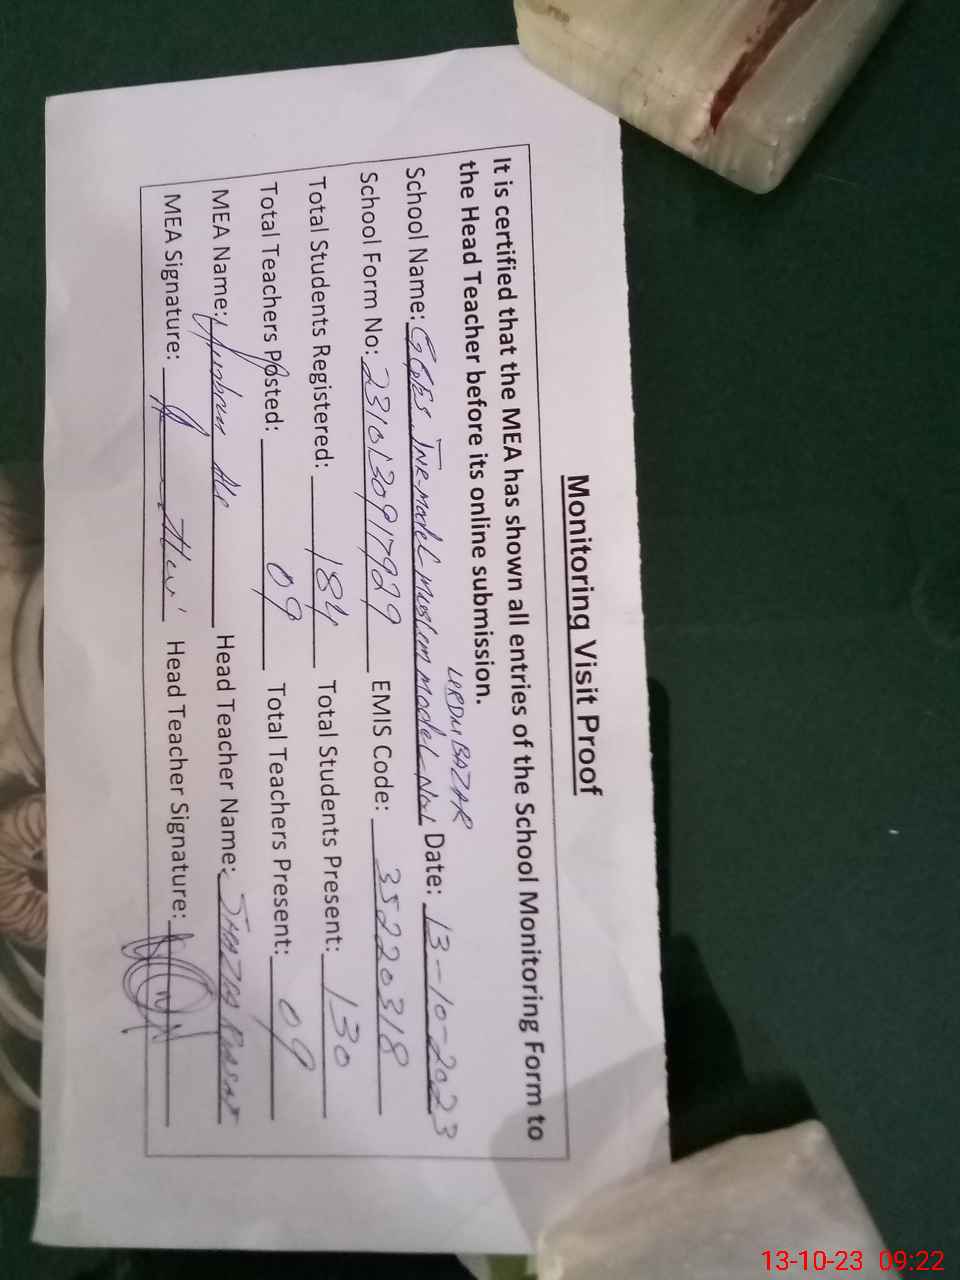 Monitoring Visit Proof
It is certified that the MEA has shown all entries of the School Monitoring Form to
the Head Teacher before its online submission.
URDU BAZAR
School Name: GGES Model Muslim Model Date: 13-10-2023
School Form No: 2310130917929 EMIS Code: 35220318
Total Students Registered: 184 Total Students Present: 130
Total Teachers Posted: 09 Total Teachers Present: 09
MEA Name: Head Teacher Name: SHAZIA
MEA Signature: Head Teacher Signature:
13-10-23 09:22